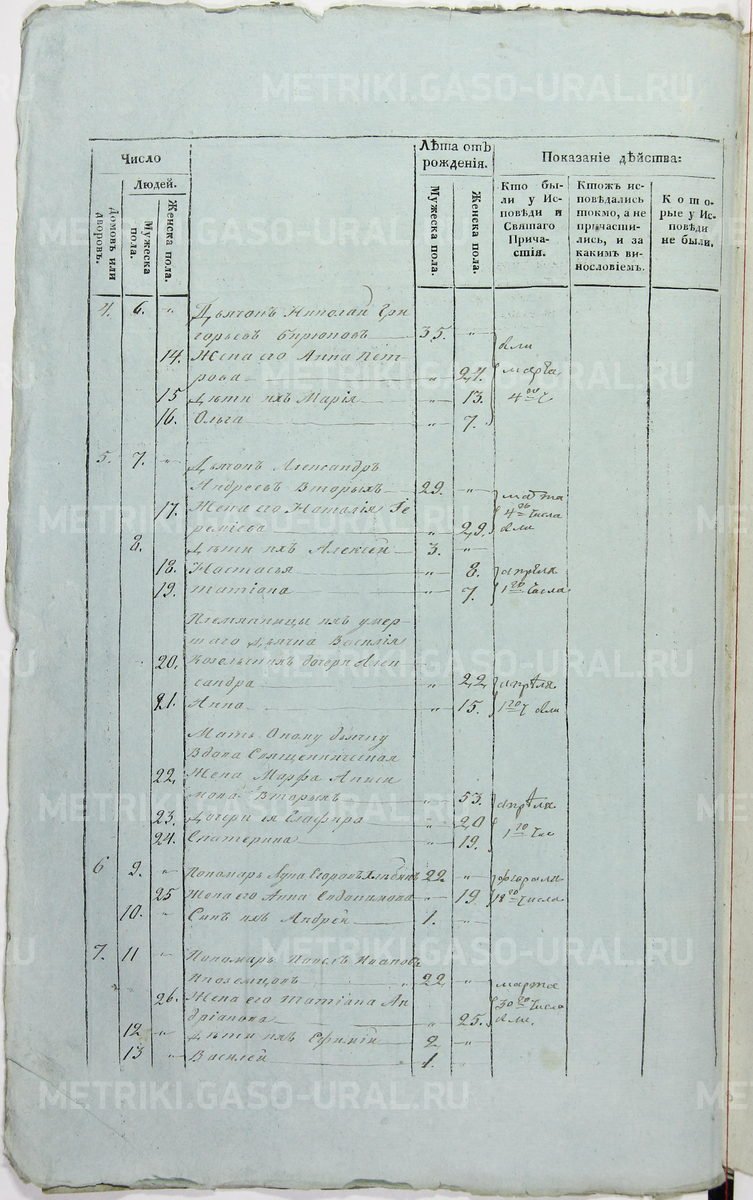 METRIKI.GASO-URAL.RU
Число
Лѣта отъ рожденія.
Показаніе дѣйства:
Людей.
Домовъ или дворовъ.
Мужеска пола.
Женска пола.
Мужеска пола.
Женска пола.
Кто были у Исповѣди и Святаго Причастія.
Ктожъ исповѣдались токмо, а не причастились, и за какимъ винословіемъ.
Которые у Исповѣди не были.
4. 6. " Дьячокъ Николай Гри
горьевъ Бирюковъ 35. "
14. Жена его Анна Пет
рова " 24. марта
15 Дѣти ихъ Марія " 13. 4го
16. Ольга " 7.
5. 7. " Дьячокъ Александръ
Андреевъ Вторыхъ 29. " марта
17. Жена его Наталія Іе 4го числа
реміева " 29.
8. Дѣти ихъ Алексей 3. "
18. Настасья " 8. апреля
19. татіана " 7. 1го числа
Племянницы ихъ умер
шаго дьячка Василія
20. дочери Алек
сандра " 22 апрѣля
21. Анна " 15. 1го
Мать Оному дьячку
Вдова Священническая
22. Жена Марфа
Вторыхъ " 53. апрѣля
23. Дочери ея Глафира " 20
24. Екатерина " 19. 1го
6 9. " Пономарь Лука Егоровъ 22. " февраля
25 Жена его Анна Евдокимова " 19 18го числа
10. " Сынъ ихъ Андрей 1. "
7. 11 " Пономарь Павелъ Ивановъ
Иноземцовъ 22 " марта
26. Жена его татіана Ан 30го числа
дріанова " 25.
12 " Дѣти ихъ Ефимій 2 "
13 " Василей 1. "